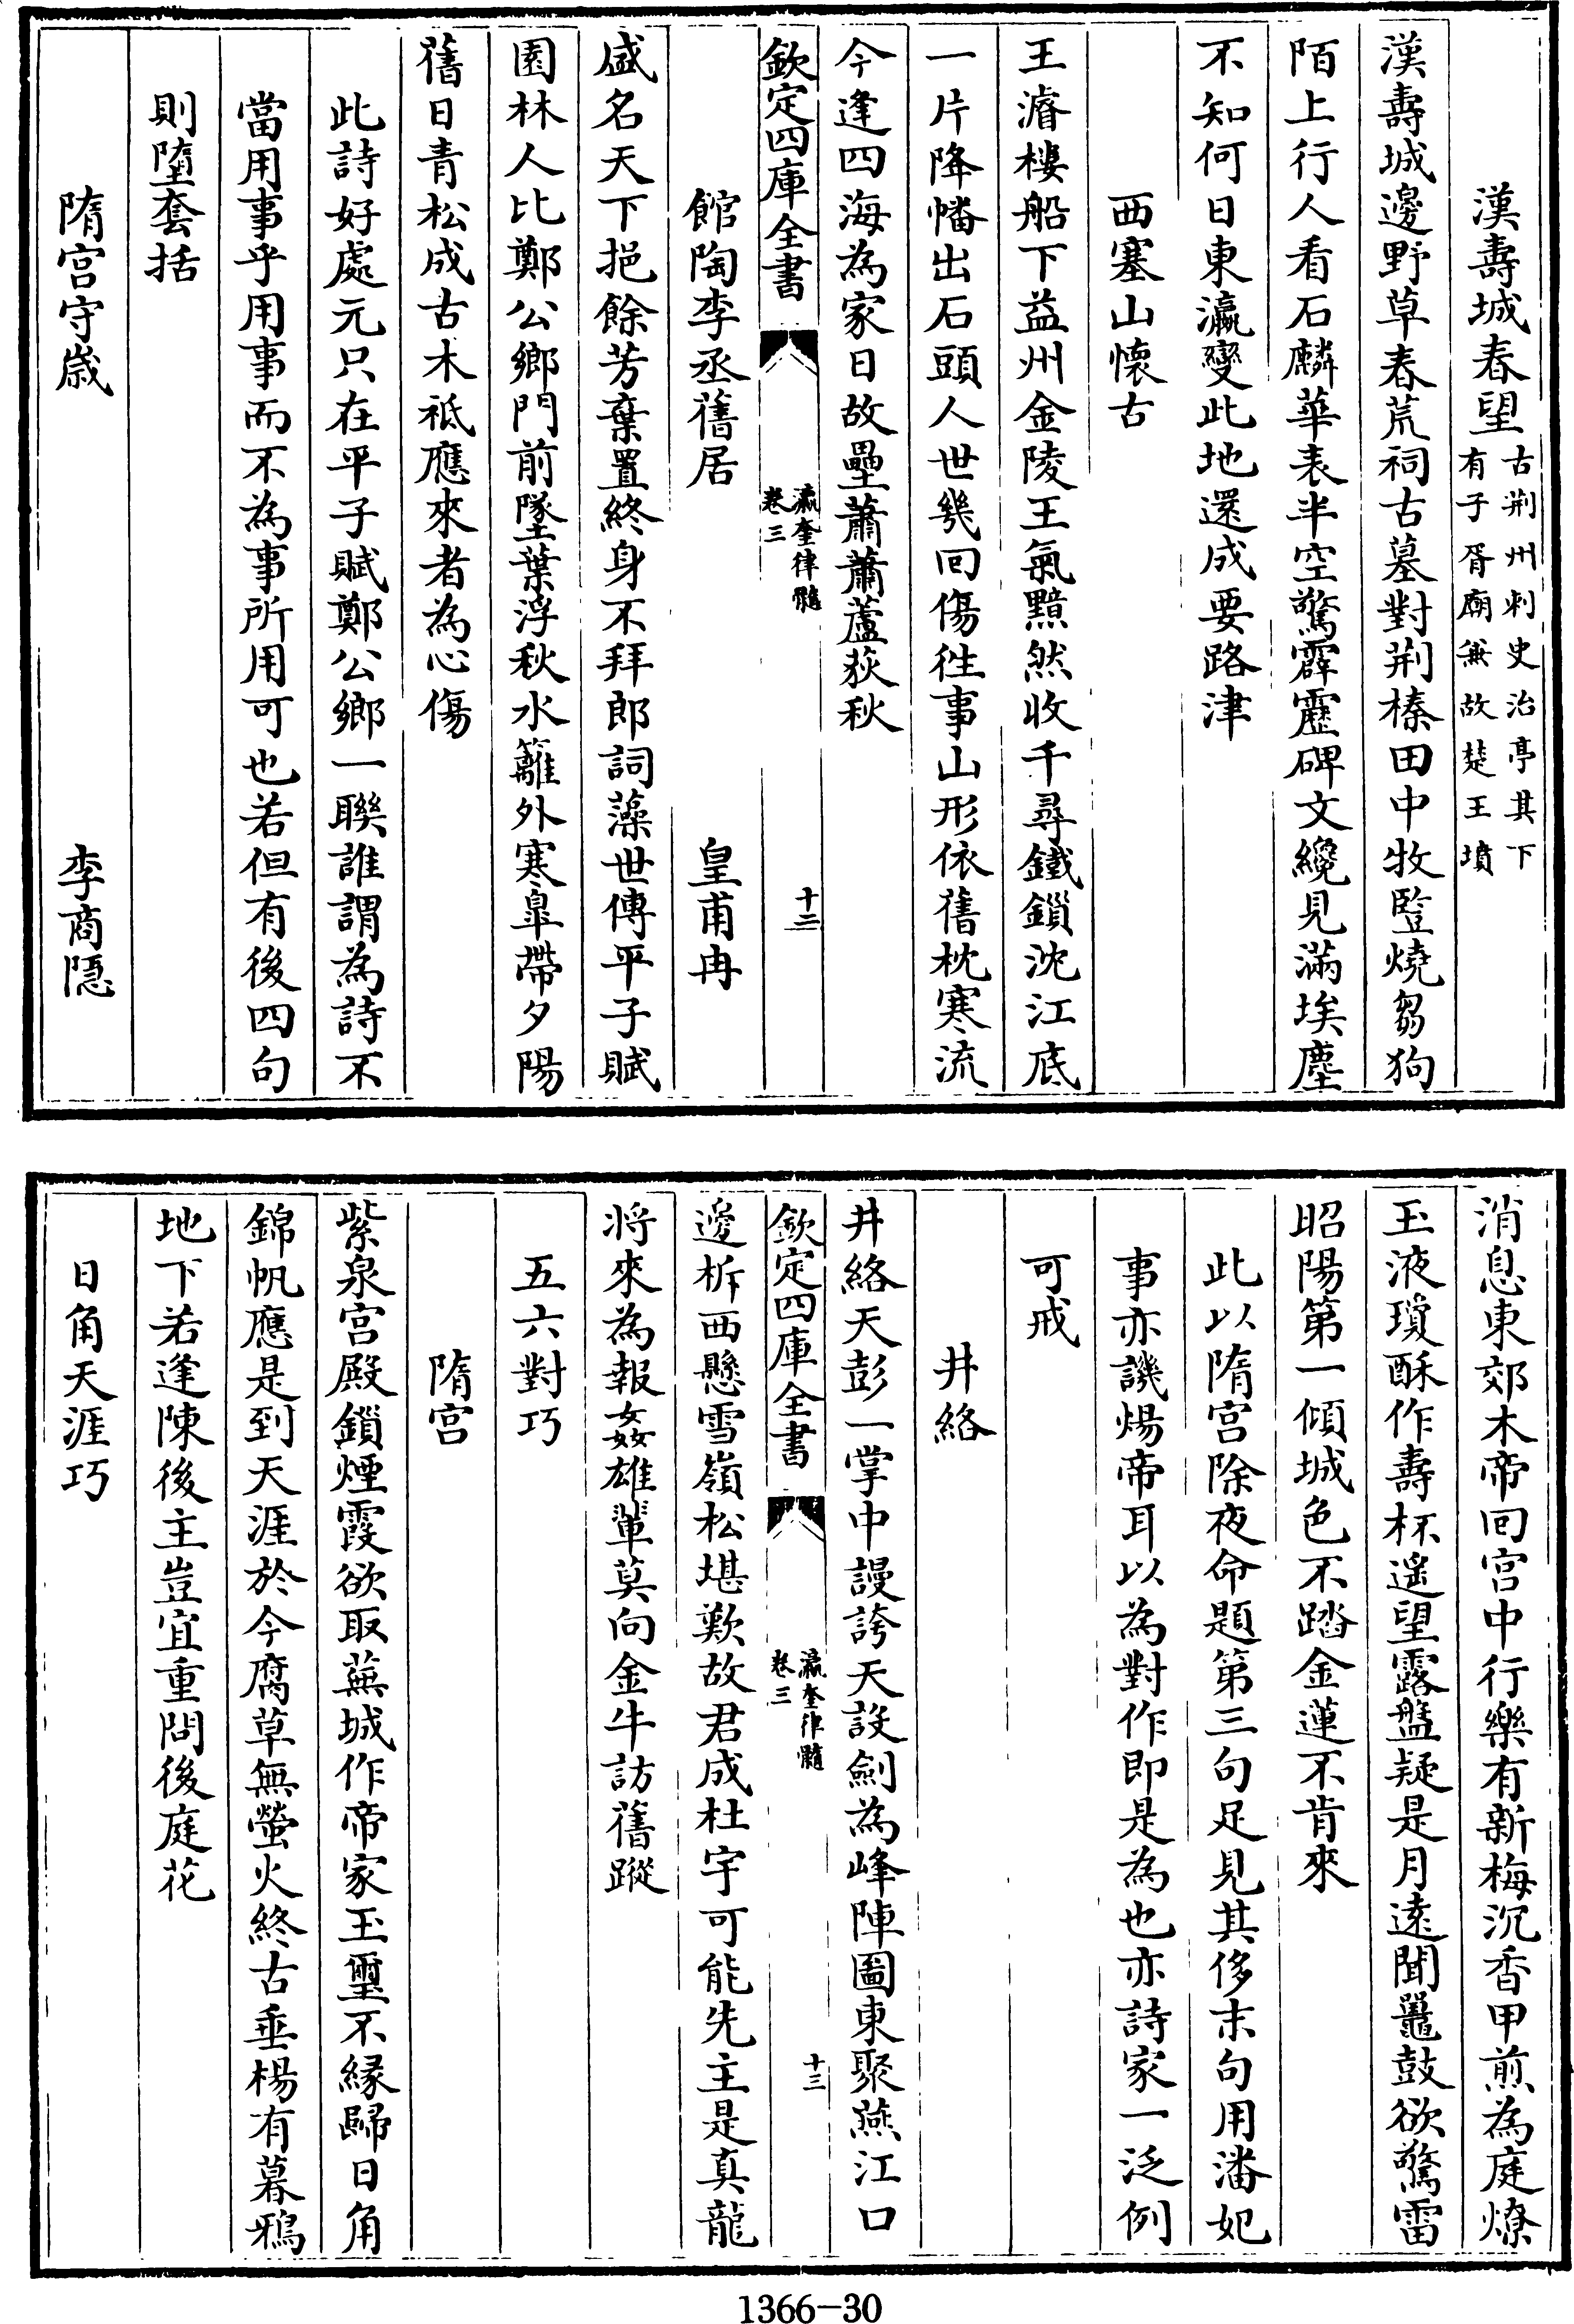 漢壽城春望古荆州刺史治亭其下有子胥廟兼故楚王墳
漢壽城邊野草春荒祠古墓對荆榛田中牧豎燒芻狗
陌上行人看石麟華表半空驚霹靂碑文纔見滿埃塵
不知何日東瀛變此地還成要路津
西塞山懷古
王濬樓船下益州金陵王氣黯然收千尋鐵鎖沈江底
一片降幡出石頭人世幾回傷徃事山形依舊枕寒流
今逢四海為家日故壘蕭蕭蘆荻秋
欽定四庫全書
瀛奎律髓
卷三
十二
館陶李丞舊居 皇甫冉
盛名天下挹餘芳棄置終身不拜郎詞藻世傳平子賦
園林人比鄭公鄉門前墜葉浮秋水籬外寒臯帶夕陽
舊日青松成古木祗應來者為心傷
此詩好處元只在平子賦鄭公鄉一聯誰謂為詩不
當用事乎用事而不為事所用可也若但有後四句
則墮套括
隋宫守歲 李商隠
消息東郊木帝回宫中行樂有新梅沉香甲煎為庭燎
玉液瓊酥作壽杯遙望露盤疑是月逺聞鼉鼓欲驚雷
昭陽第一傾城色不踏金蓮不肯來
此以隋宫除夜命題第三句足見其侈末句用潘妃
事亦譏煬帝耳以為對作即是為也亦詩家一泛例
可戒
井絡
井絡天彭一掌中謾誇天設劍為峰陣圖東聚燕江口
欽定四庫全書
瀛奎律髓
卷三
十三
邊柝西懸雪嶺松堪歎故君成杜宇可能先主是真龍
將來為報姦雄輩莫向金牛訪舊蹤
五六對巧
隋宫
紫泉宫殿鎖煙霞欲取蕪城作帝家玉璽不縁歸日角
錦帆應是到天涯於今腐草無螢火終古垂楊有暮鴉
地下若逢陳後主豈宜重問後庭花
日角天涯巧
1366-30